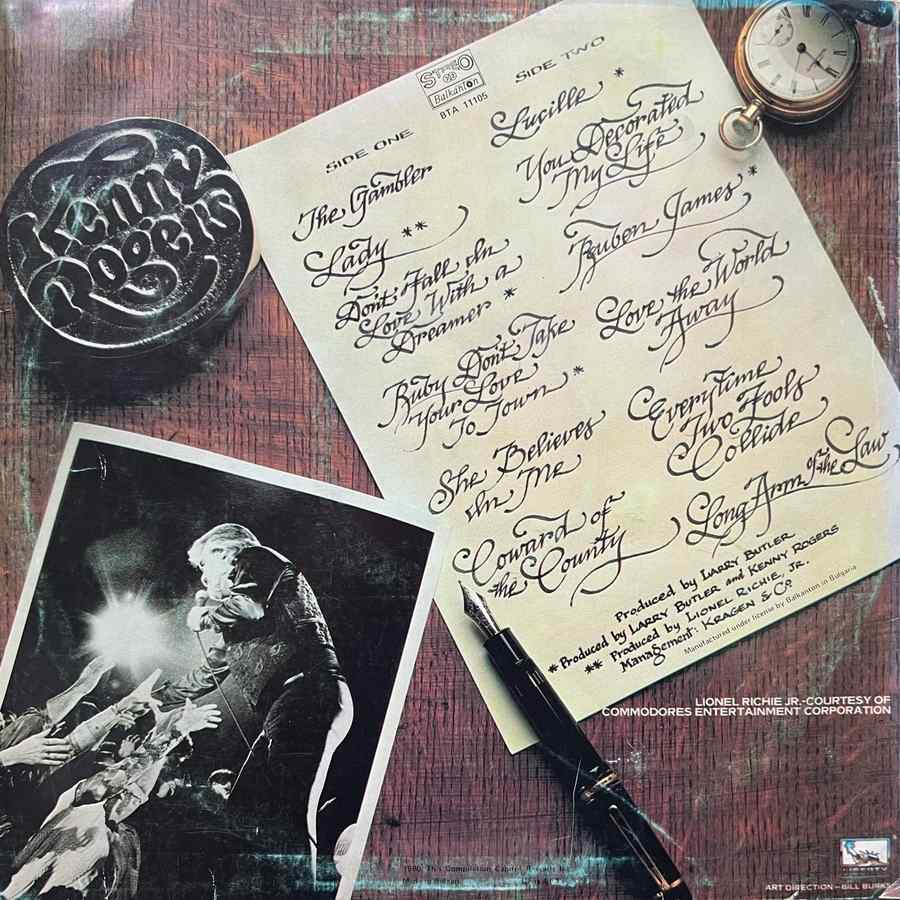 Kenny
Rogers
STEREO
Balkanton
BTA 11105
SIDE ONE
The Gambler
Lady **
Don't Fall In
Love With a
Dreamer *
Ruby Don't Take
Your Love
To Town *
She Believes
In Me
Coward of
the County
SIDE TWO
Lucille *
You Decorated
My Life
Ruben James *
Love the World
Away
Everytime
Two Fools
Collide
Long Arm of the Law
Produced by LARRY BUTLER
* Produced by LARRY BUTLER and KENNY ROGERS
** Produced by LIONEL RICHIE, JR.
Management: KRAGEN & Co
Manufactured under license by Balkanton in Bulgaria
LIONEL RICHIE JR.-COURTESY OF
COMMODORES ENTERTAINMENT CORPORATION
1980 This Compilation Capitol Records
LIBERTY
ART DIRECTION—BILL BURKS